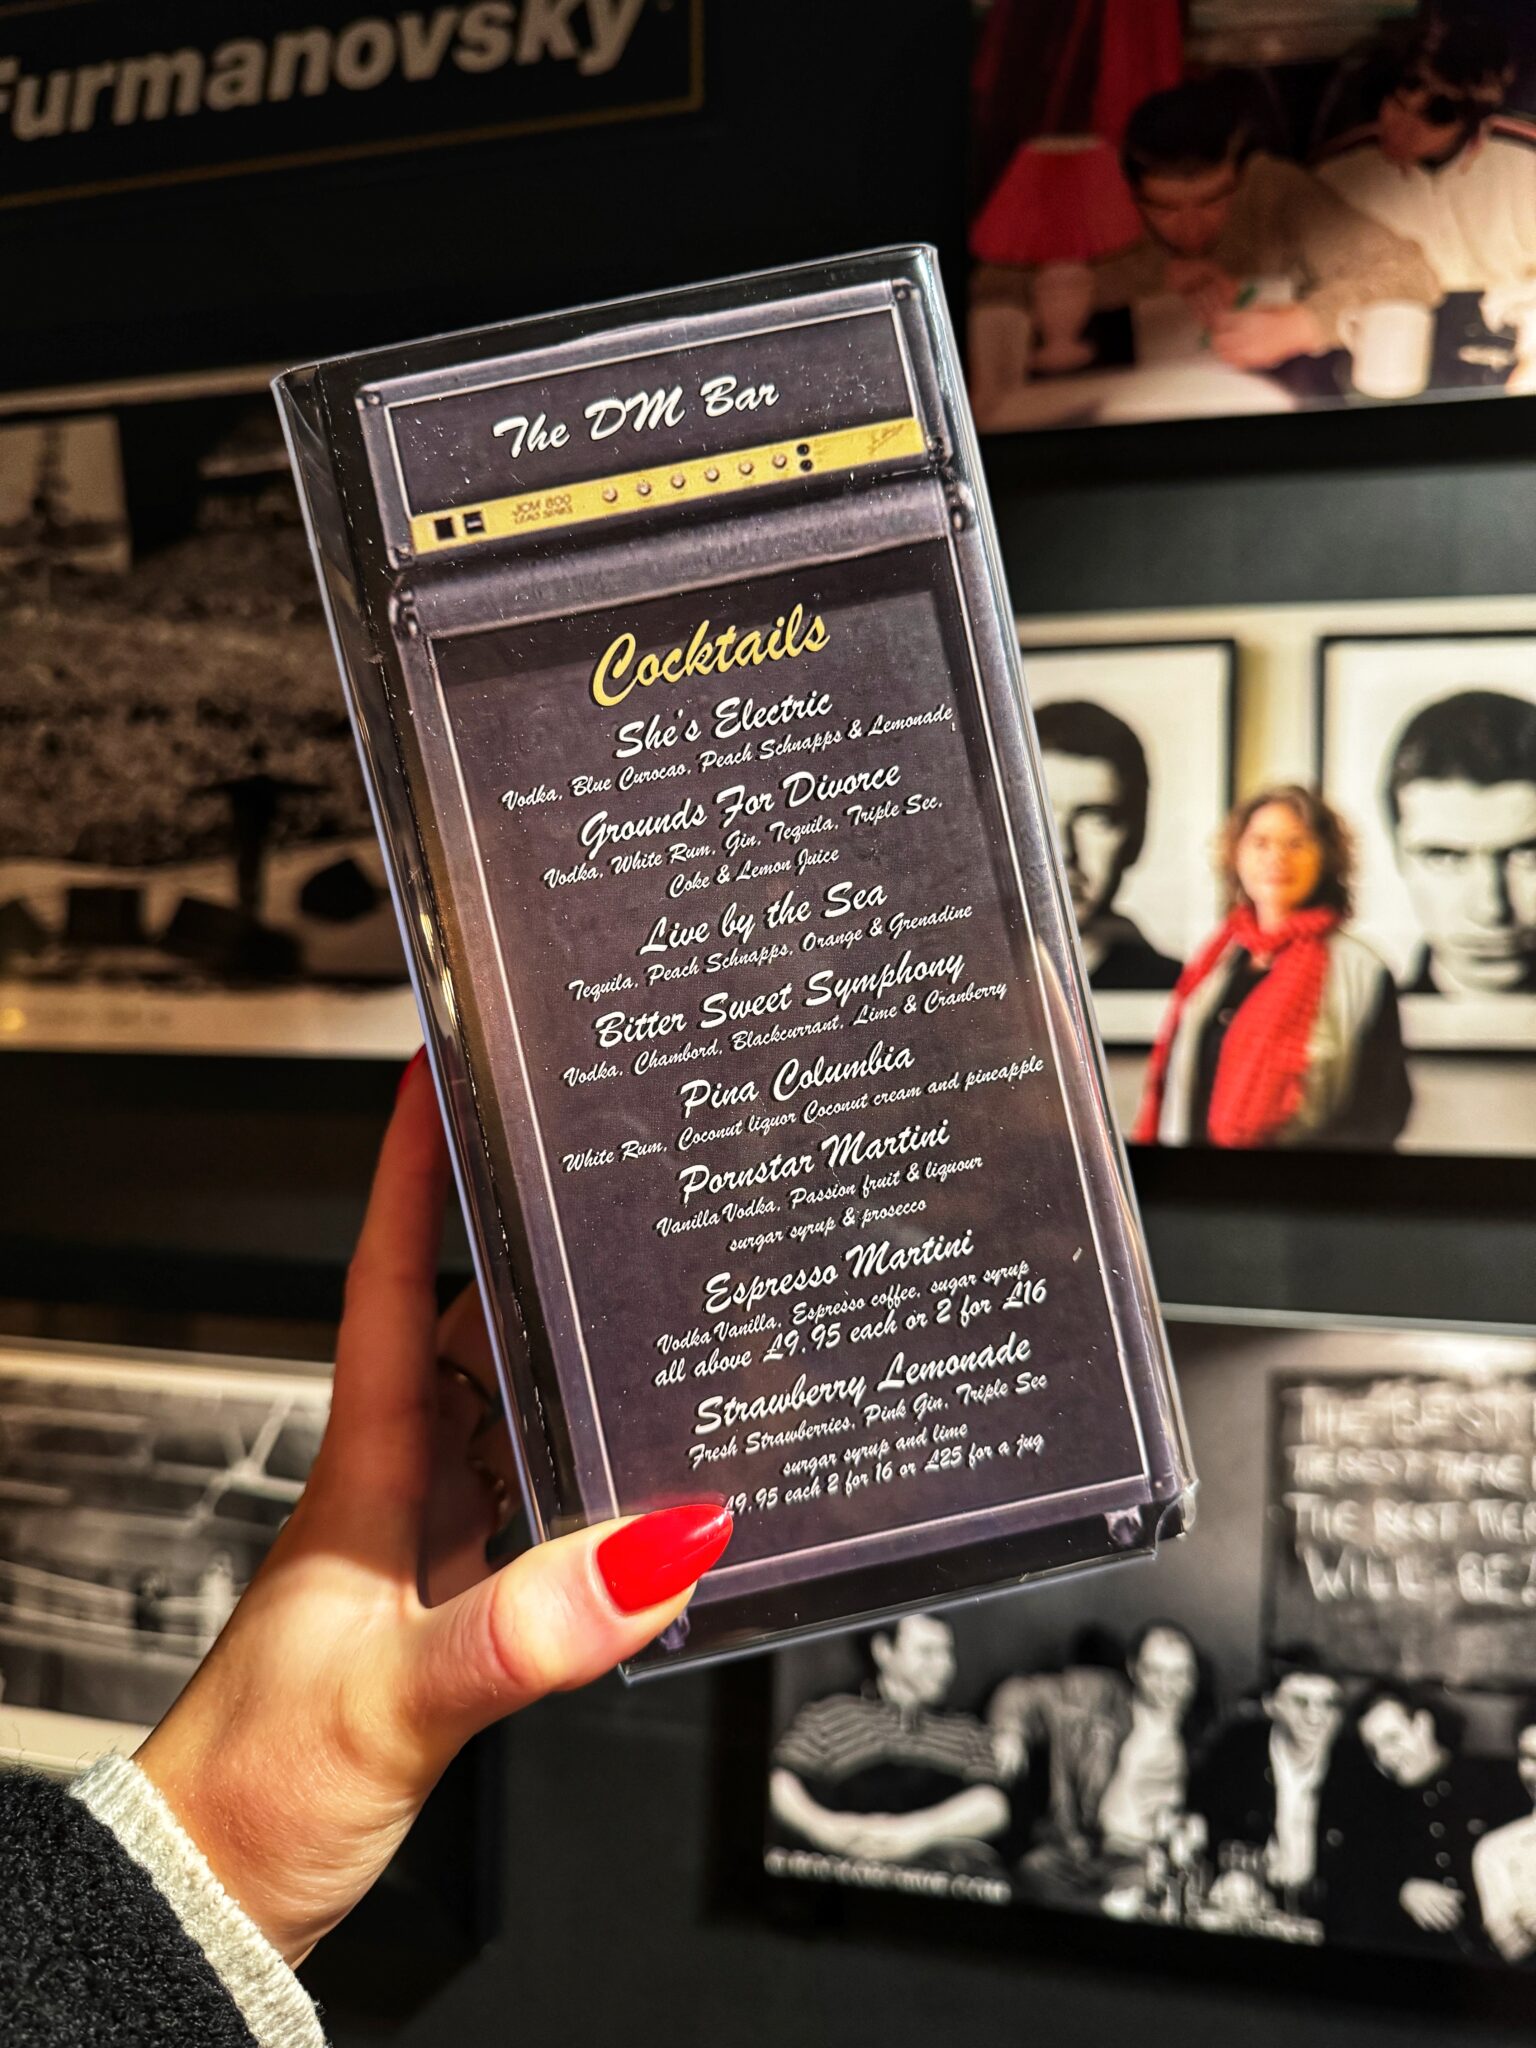 Furmanovsky
The DM Bar
JCM 800
LEAD SERIES
Cocktails
She's Electric
Vodka, Blue Curocao, Peach Schnapps & Lemonade
Grounds For Divorce
Vodka, White Rum, Gin, Tequila, Triple Sec,
Coke & Lemon Juice
Live by the Sea
Tequila, Peach Schnapps, Orange & Grenadine
Bitter Sweet Symphony
Vodka, Chambord, Blackcurrant, Lime & Cranberry
Pina Columbia
White Rum, Coconut liquor Coconut cream and pineapple
Pornstar Martini
Vanilla Vodka, Passion fruit & liquour
surgar syrup & prosecco
Espresso Martini
Vodka Vanilla, Espresso coffee, sugar syrup
all above £9.95 each or 2 for £16
Strawberry Lemonade
Fresh Strawberries, Pink Gin, Triple Sec
surgar syrup and lime
£9.95 each 2 for 16 or £25 for a jug
THE BEST
THE BEST
WILL BE